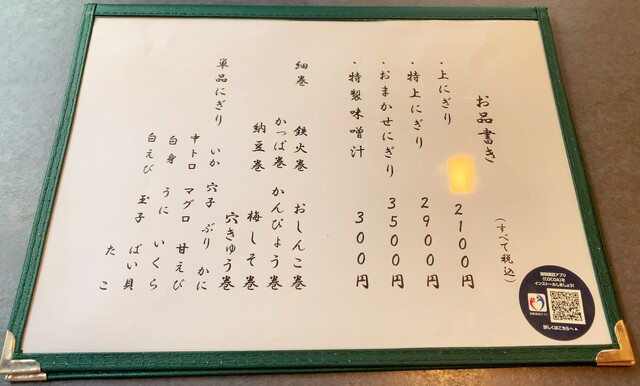 お品書き
(すべて税込)
・上にぎり 2100円
・特上にぎり 2900円
・おまかせにぎり 3500円
・特製味噌汁 300円
細巻 鉄火巻 おしんこ巻
かっぱ巻 かんぴょう巻
納豆巻 梅しそ巻
穴きゅう巻
単品にぎり いか 穴子 ぶり かに
中トロ マグロ 甘えび
白身 うに いくら
白えび 玉子 ばい貝
たこ
接触確認アプリ
(COCOA)を
インストールしましょう!
詳しくはこちらへ▲